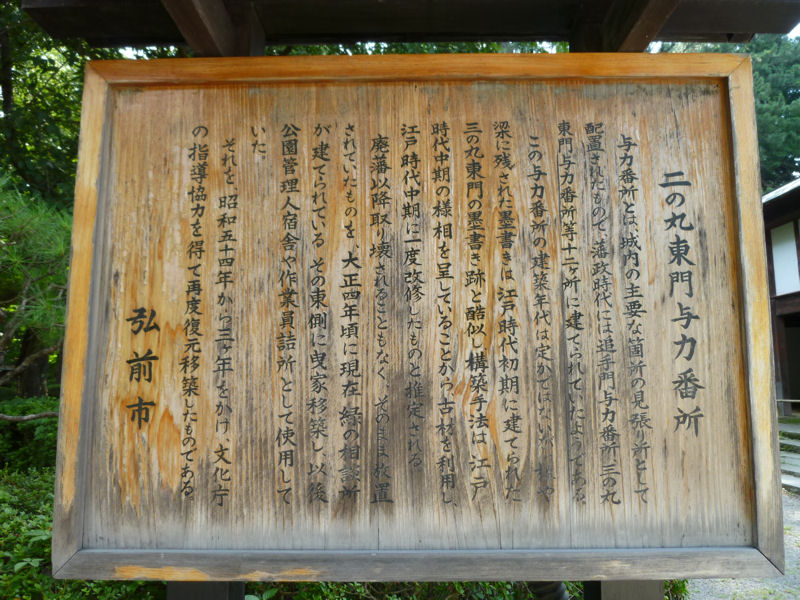 二の丸東門与力番所
与力番所とは、城内の主要な箇所の見張り所として
配置されたもので、藩政時代には追手門与力番所、三の丸
東門与力番所等十二ヶ所に建てられていたようである。
この与力番所の建築年代は定かではないが、や
梁に残された墨書きは、江戸時代初期に建てられた
三の丸東門の墨書き跡と酷似し、構築手法は、江戸
時代中期の様相を呈していることから、古材を利用し、
江戸時代中期に一度改修したものと推定される。
廃藩以降取り壊されることもなく、そのまま放置
されていたものを、大正四年頃に現在緑の相談所
が建てられている その東側に曳家移築し、以後
公園管理人宿舎や作業員詰所として使用して
いた。
それを、昭和五十四年から三ヶ年をかけ、文化庁
の指導協力を得て再度復元移築したものである。
弘前市